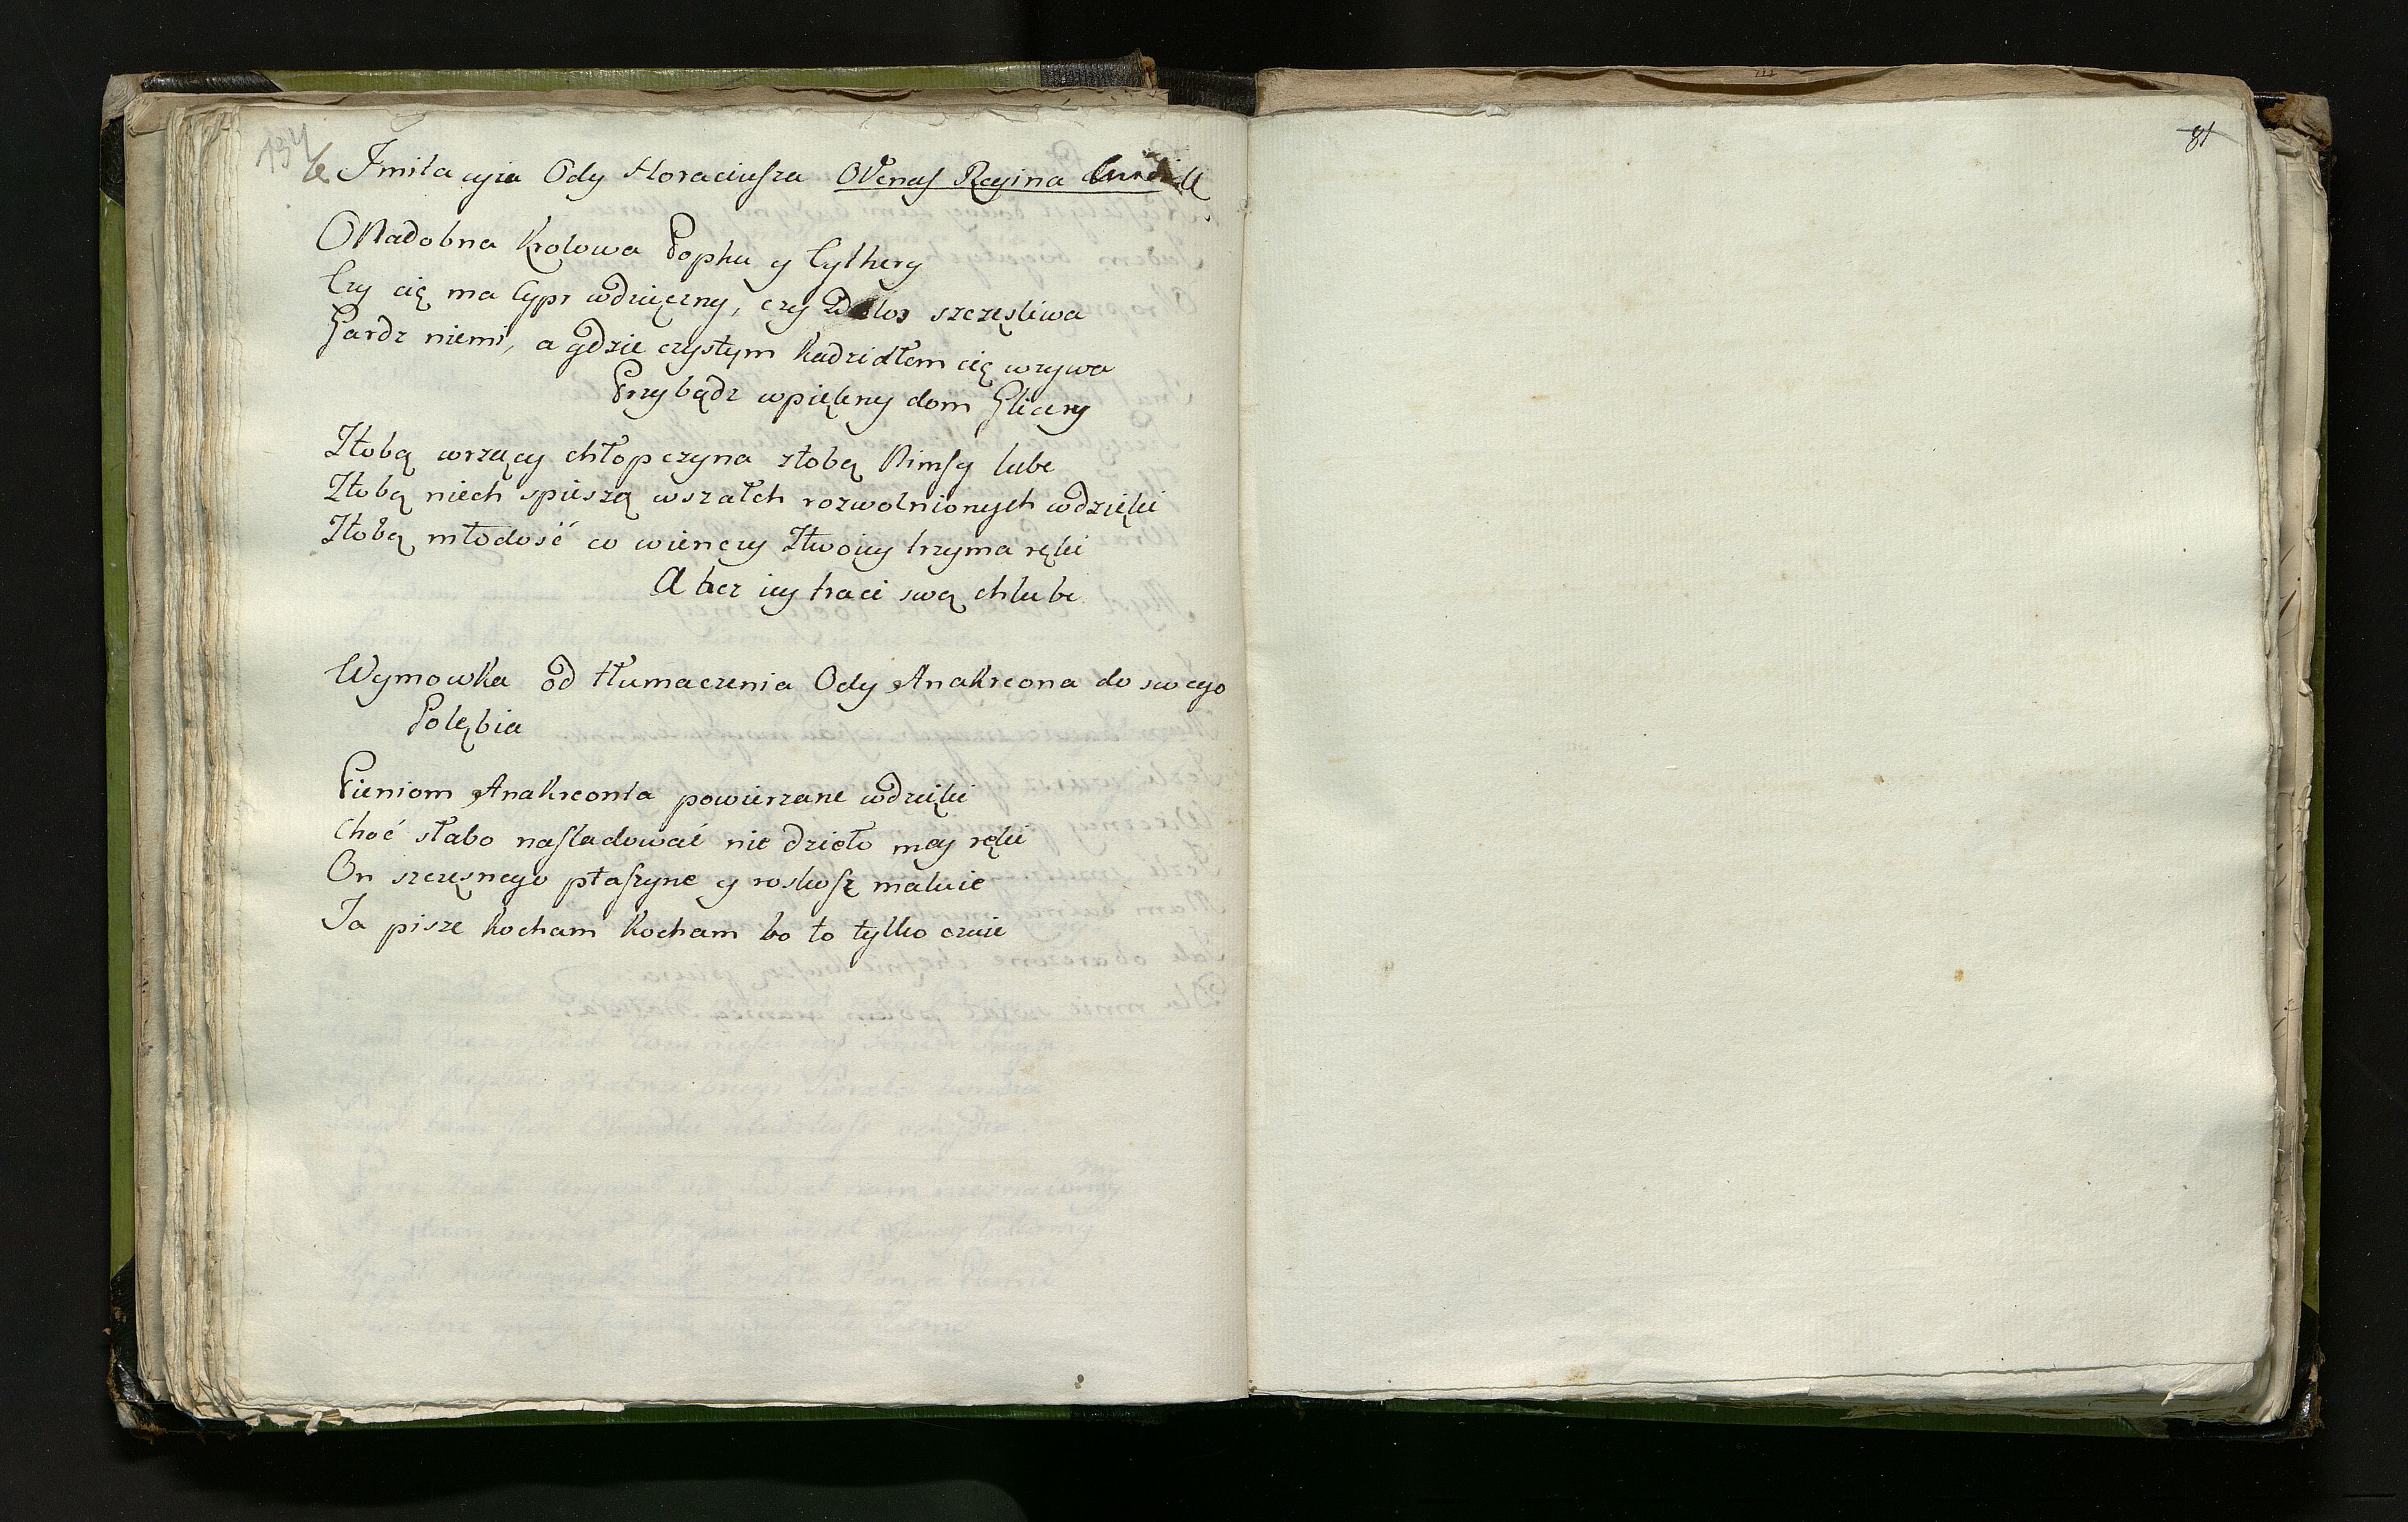 134
Jmitacyia Ody Horaciusza O Venus Regina
O Nadobna Krolowa Paphu y Cythery
Czy cię ma Cypr wdzięczny, czy Delos szczęsliwa
Gardz niemi, a gdzie czystym kadzidłem cię wzywa
Przybądz wpiękny dom Glicery
Ztobą wrzący chłopczyna ztobą Nimfy lube
Ztobą niech spieszą wszatch rozwolnionych wdzięki
Ztobą młodość co wienczy Ztwoiey trzyma ręki
A bez iey traci swą chlube
Wymowka od tłumaczenia Ody Anakreona do swego
Golębia
Pieniom Anakreonta powierzane wdzięki
Choć słabo nasladować nie dzieło mey ręki
On szczęsnego ptaszyne y roskosz maluie
Ja pisze kocham kocham bo to tylko czuie
81